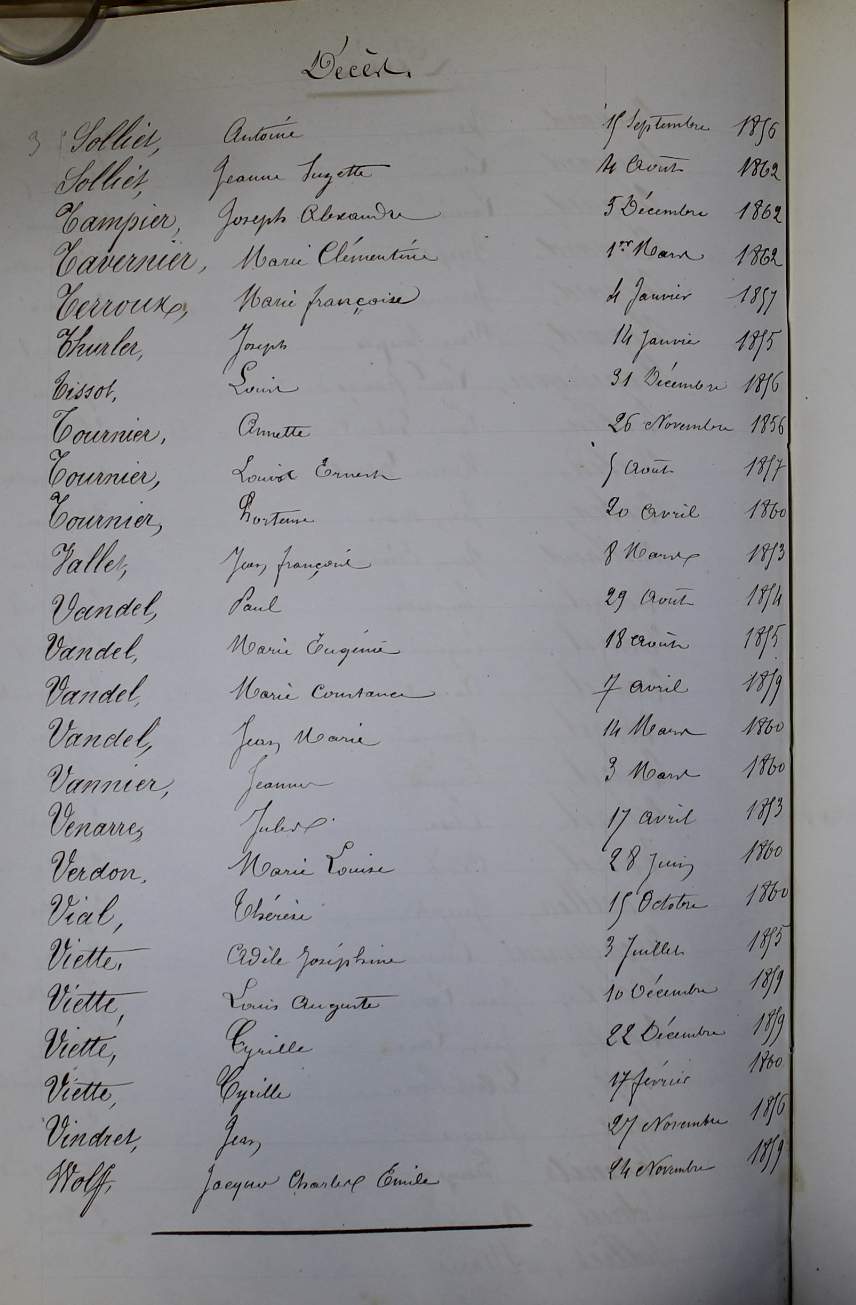 Décès.
Solliet, Antoine 15 Septembre 1856
Solliet, Jeanne Suzette 4 Août 1862
Tampier, Joseph Alexandre 5 Décembre 1862
Tavernier, Marie Clémentine 1er Mars 1862
Terroux, Marie françoise 4 Janvier 1857
Thurler, Joseph 14 Janvier 1855
Tissot, Louis 31 Décembre 1856
Tournier, Annette 26 Novembre 1856
Tournier, Louis Ernest 5 Août 1857
Tournier, Hortense 20 Avril 1860
Vallet, Jean françois 8 Mars 1853
Vandel, Paul 29 Août 1854
Vandel, Marie Eugénie 18 Août 1855
Vandel, Marie Constance 7 Avril 1859
Vandel, Jean Marie 14 Mars 1860
Vannier, Jeanne 3 Mars 1860
Venarre, Jules 17 Avril 1853
Verdon, Marie Louise 28 Juin 1860
Vial, Thérèse 15 Octobre 1860
Viette, Adèle Joséphine 3 Juillet 1855
Viette, Louis Auguste 10 Décembre 1859
Viette, Cyrille 22 Décembre 1859
Viette, Cyrille 17 février 1860
Vindret, Jean 27 Novembre 1856
Wolff, Jacques Charles Emile 24 Novembre 1859